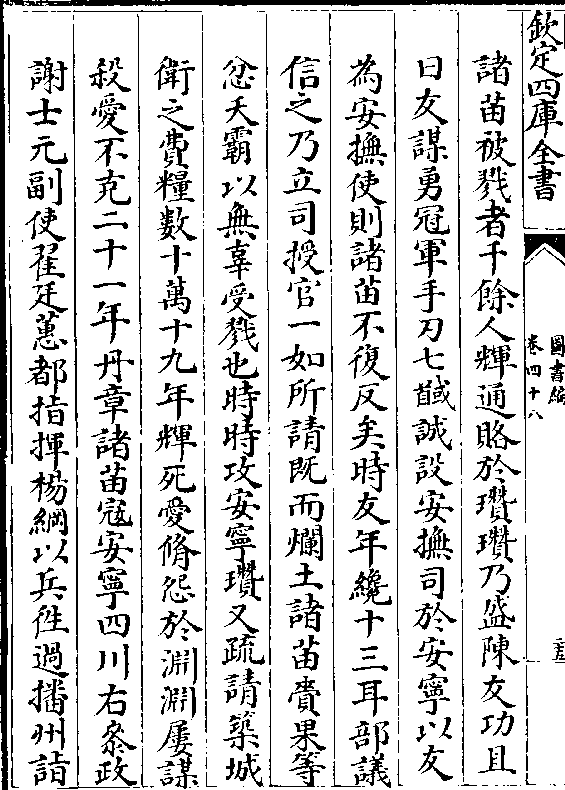 欽定四庫全書
圖書編
卷四十八
二五
諸苗被戮者千餘人輝通賂於瓚瓚乃盛陳友功且
曰友謀勇冠軍手刃七馘誠設安撫司於安寧以友
為安撫使則諸苗不復反矣時友年纔十三耳部議
信之乃立司授官一如所請既而爛土諸苗賫果等
忿夭霸以無辜受戮也時時攻安寧瓚又疏請築城
衛之費糧數十萬十九年輝死愛脩怨於淵淵屢謀
殺愛不克二十一年丹章諸苗冦安寧四川右叅政
謝士元副使翟廷蕙都指揮楊綱以兵徃過播州詰